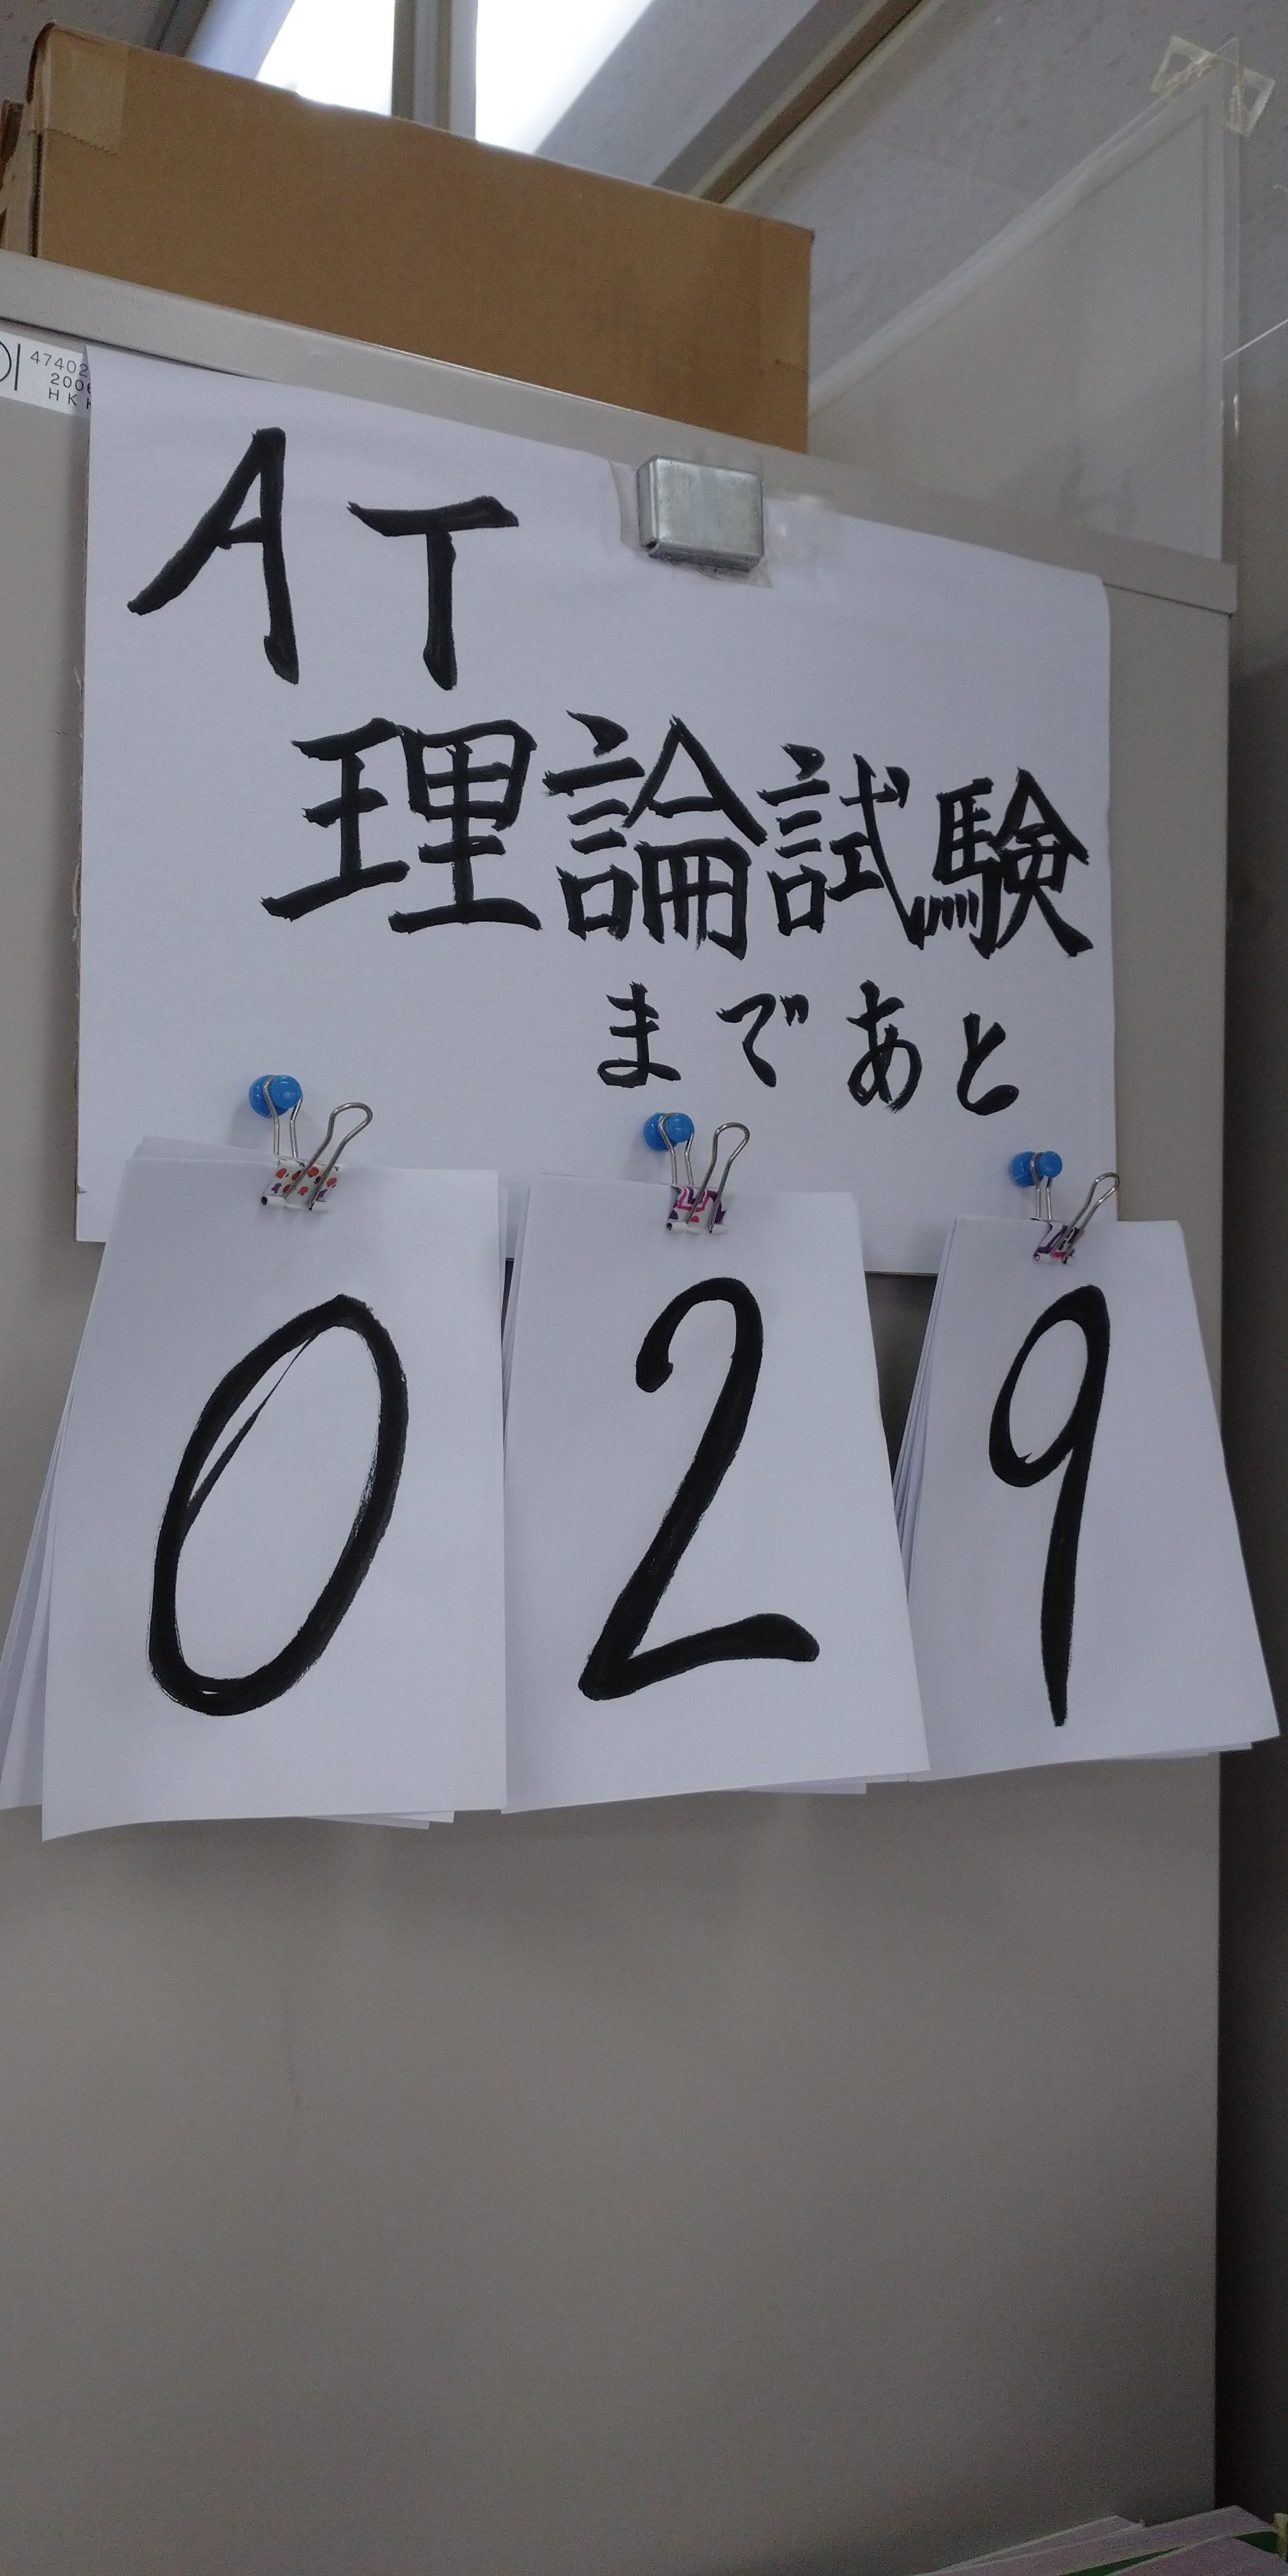 47402
2006
HK
AT
理論試験
まであと
029